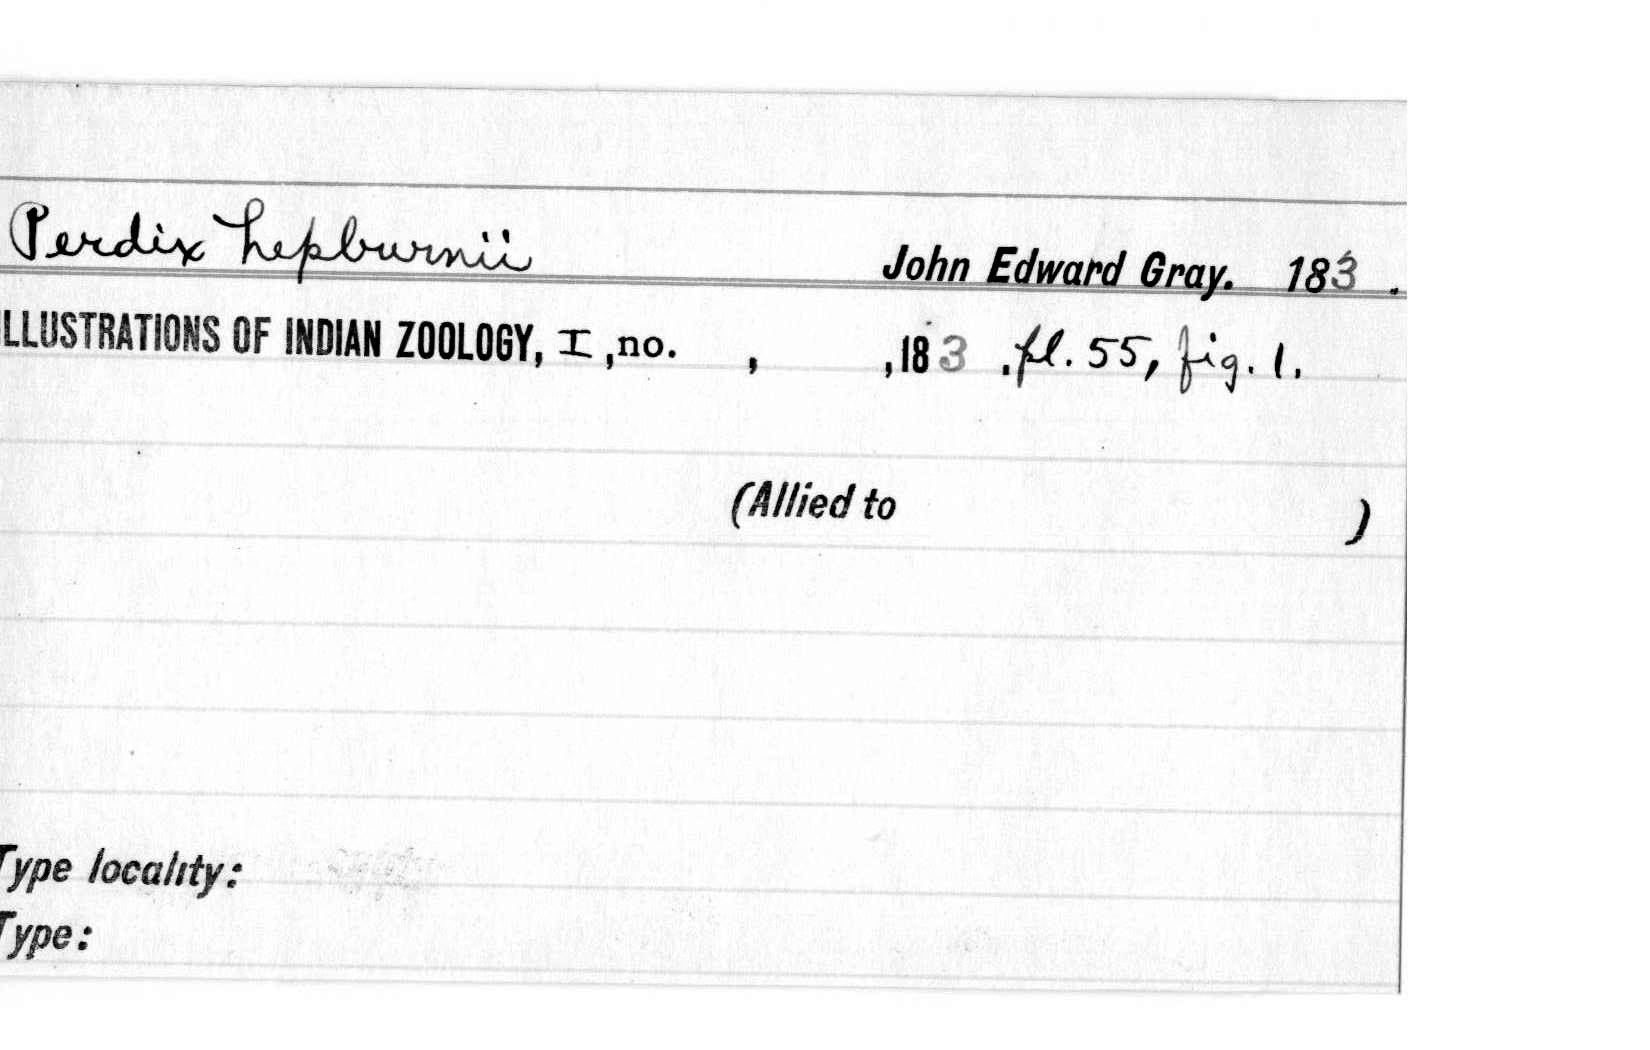 Perdix hepburnii John Edward Gray. 183 .
ILLUSTRATIONS OF INDIAN ZOOLOGY, I ,no. , ,183 .pl. 55, fig. 1.
(Allied to )
Type locality:
Type: